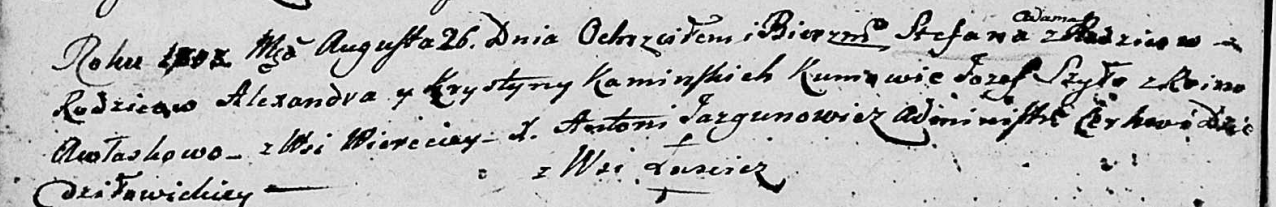 Roku 1802 Mca Augusta 26. Dnia Ochrzciłem i Bierzm. Stefana Adama z Rodzicow
Rodzicow Alexandra y Krystyny Kaminskich Kumowie Jozef Szyło z
z Wsi Wierecicy X. Antoni Jazgunowicz Administr Cerkwi
dziławickiey z Wsi Łusticz